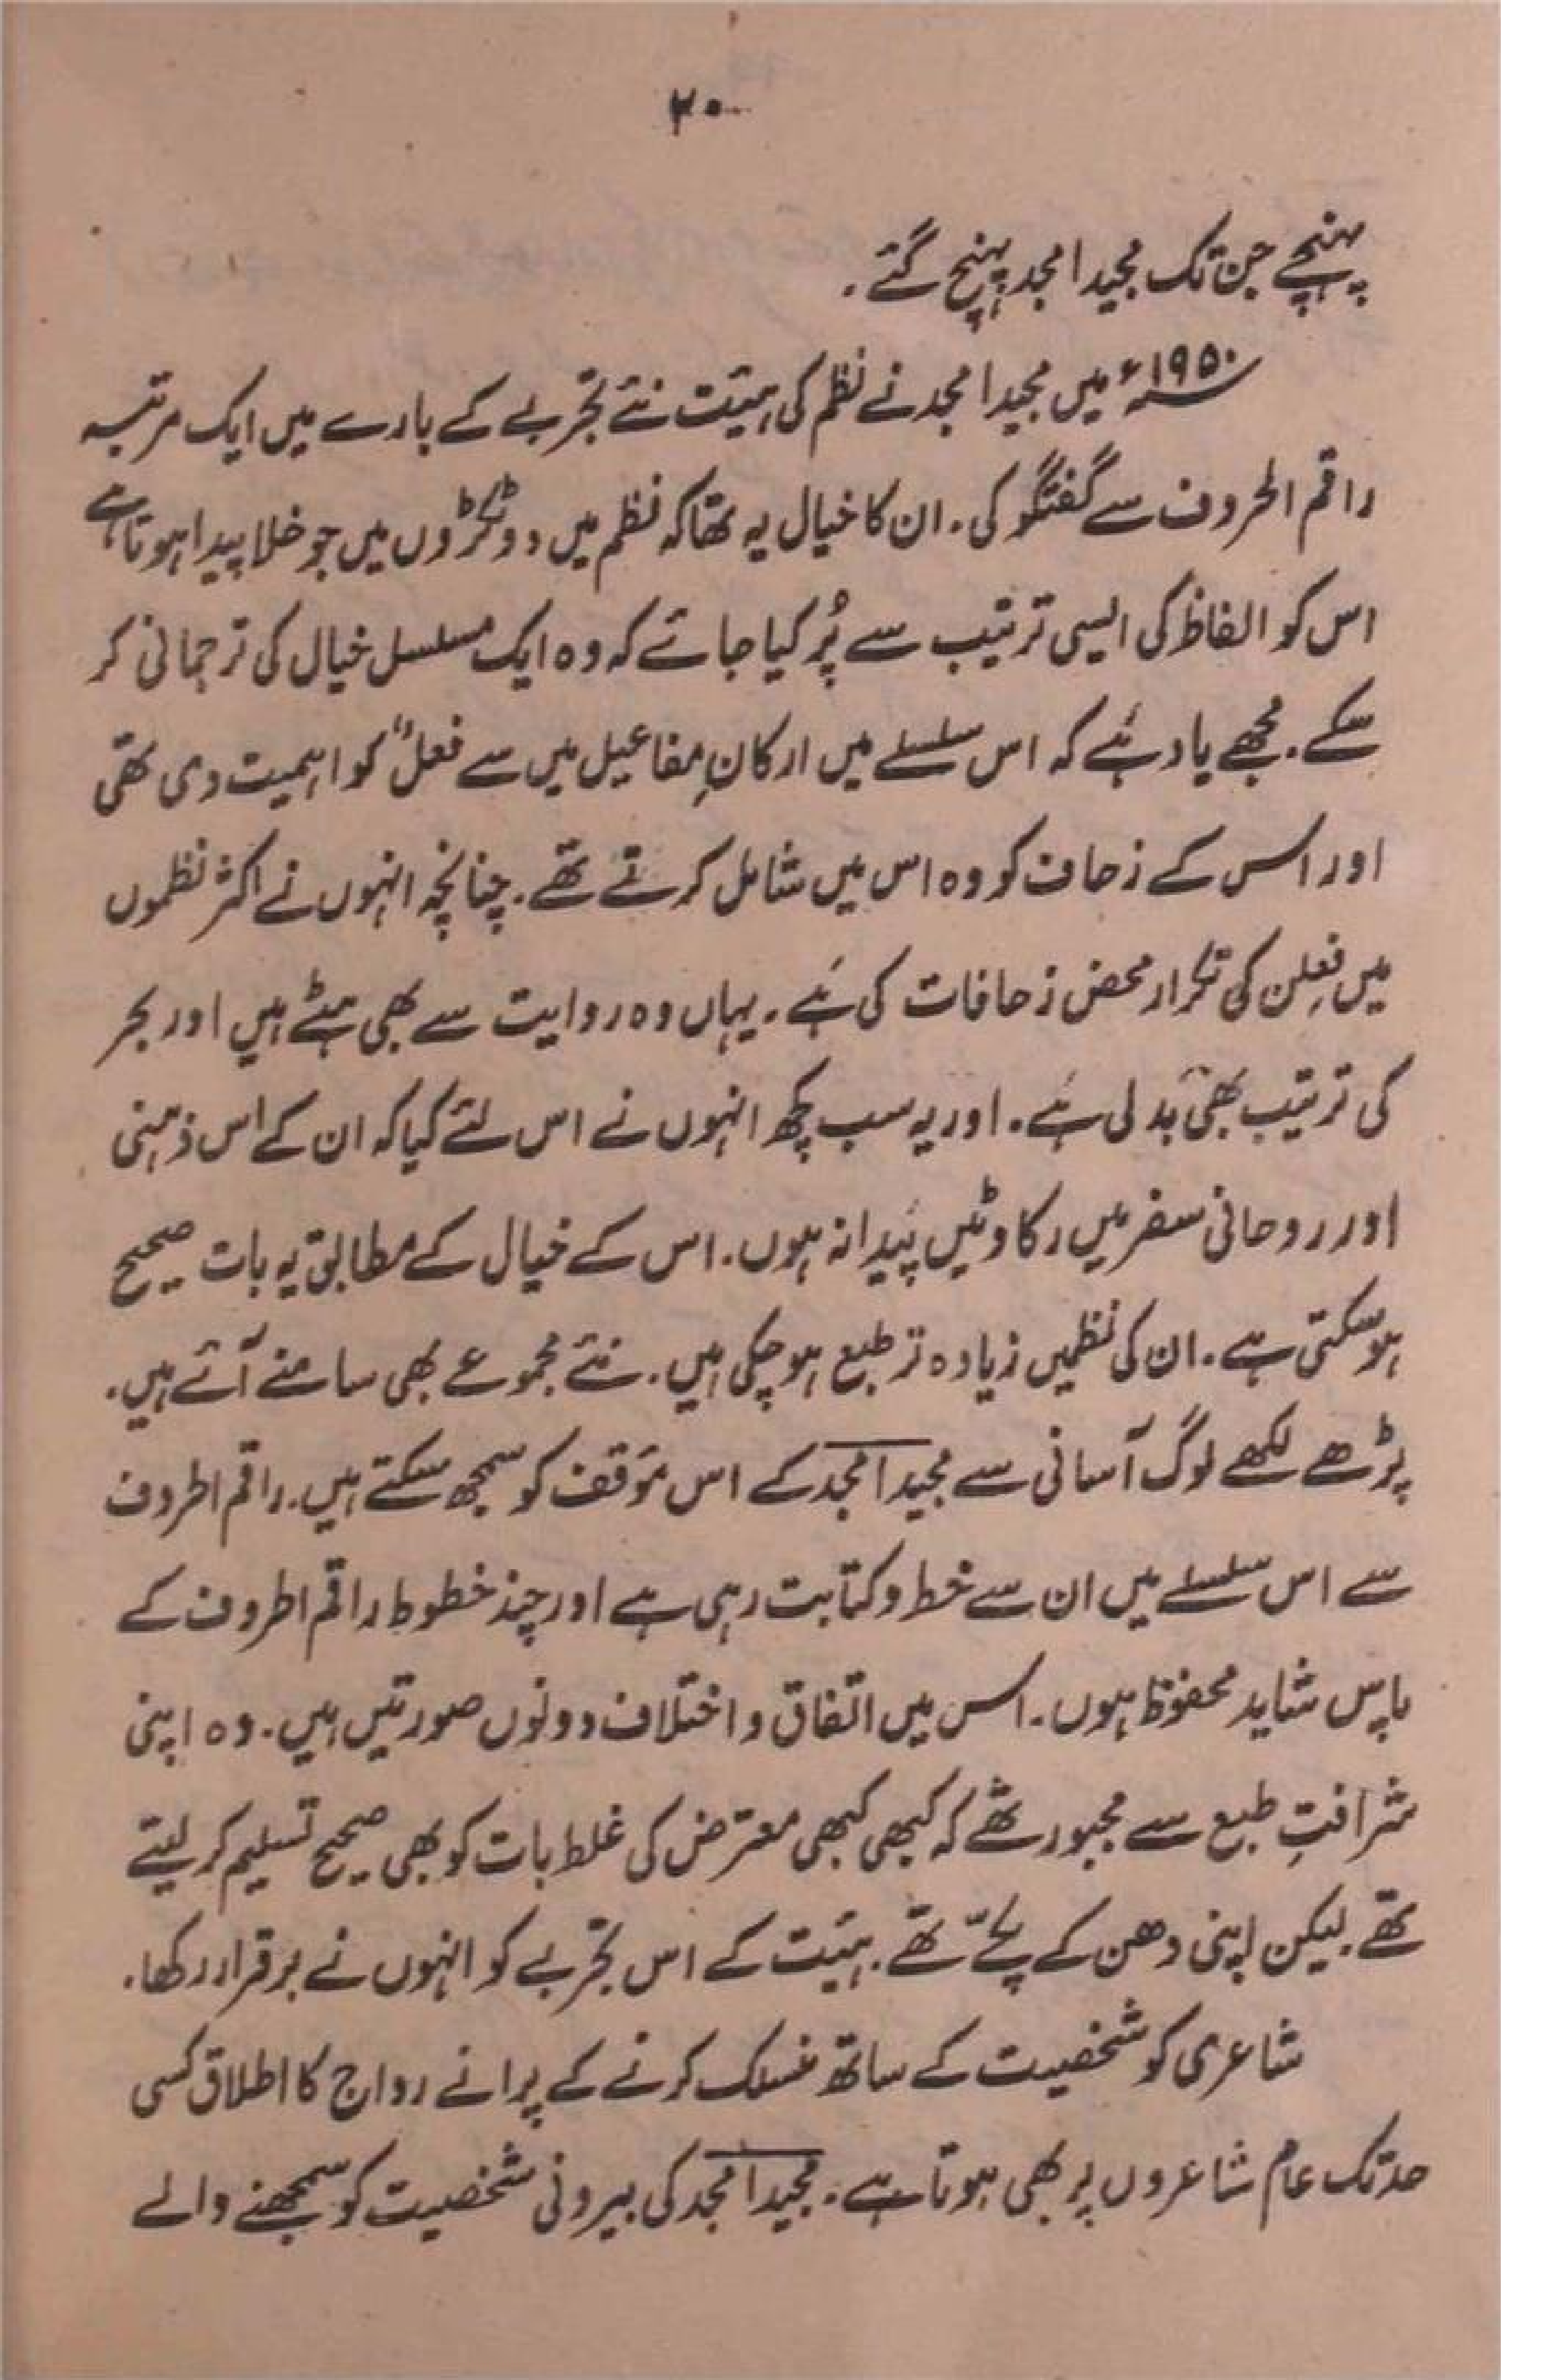 ۲۰
پہنچے جن تک مجید امجد پہنچ گئے۔
۱۹۵۰ء میں مجید امجد نے نظم کی ہیئت نئے تجربے کے بارے میں ایک مرتبہ
راقم الحروف سے گفتگو کی۔ ان کا خیال یہ تھا کہ نظم میں دو ٹکڑوں میں جو خلا پیدا ہوتا ہے
اس کو الفاظ کی ایسی ترتیب سے پُر کیا جائے کہ وہ ایک مسلسل خیال کی ترجمانی کر
سکے۔ مجھے یاد ہے کہ اس سلسلے میں ارکانِ مفاعیل میں سے فعلُ کو اہمیت دی تھی
اور اس کے زحاف کو وہ اس میں شامل کرتے تھے۔ چنانچہ انہوں نے اکثر نظموں
میں فعِلن کی تکرار محض زحافات کی ہے۔ یہاں وہ روایت سے بھی ہٹے ہیں اور بحر
کی ترتیب بھی بدلی ہے۔ اور یہ سب کچھ انہوں نے اس لئے کیا کہ ان کے اس ذہنی
اور روحانی سفر میں رکاوٹیں پیدا نہ ہوں۔ اس کے خیال کے مطابق یہ بات صحیح
ہو سکتی ہے۔ ان کی نظمیں زیادہ تر طبع ہو چکی ہیں۔ نئے مجموعے بھی سامنے آئے ہیں۔
پڑھے لکھے لوگ آسانی سے مجید امجد کے اس مؤقف کو سمجھ سکتے ہیں۔ راقم الحروف
سے اس سلسلے میں ان سے خط و کتابت رہی ہے اور چند خطوط راقم الحروف کے
پاس شاید محفوظ ہوں۔ اس میں اتفاق و اختلاف دونوں صورتیں ہیں۔ وہ اپنی
شرافتِ طبع سے مجبور تھے کہ کبھی کبھی معترض کی غلط بات کو بھی صحیح تسلیم کر لیتے
تھے۔ لیکن اپنی دھن کے پکّے تھے۔ ہیئت کے اس تجربے کو انہوں نے برقرار رکھا۔
شاعری کو شخصیت کے ساتھ منسلک کرنے کے پرانے رواج کا اطلاق کسی
حد تک عام شاعروں پر بھی ہوتا ہے۔ مجید امجد کی بیرونی شخصیت کو سمجھنے والے